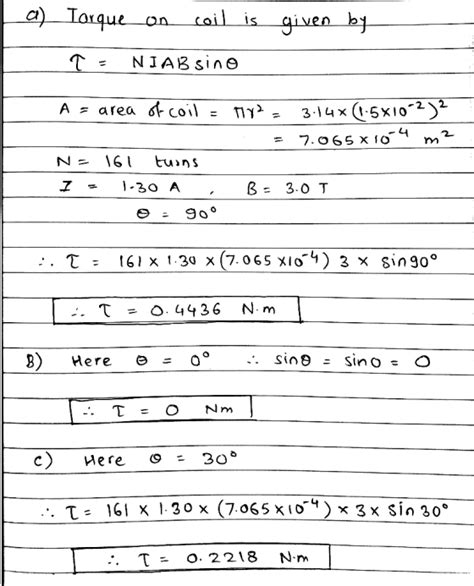 a) Torque on coil is given by
τ = NIAB sinθ
A = area of coil = πr² = 3.14 × (1.5×10⁻²)²
= 7.065 × 10⁻⁴ m²
N = 161 turns
I = 1.30 A , B = 3.0 T
θ = 90°
∴ τ = 161 × 1.30 × (7.065 ×10⁻⁴) 3 × sin90°
∴ τ = 0.4436 N·m
B) Here θ = 0° ∴ sinθ = sin0 = 0
∴ τ = 0 Nm
c) Here θ = 30°
∴ τ = 161 × 1.30 × (7.065×10⁻⁴) × 3 × sin 30°
∴ τ = 0.2218 N·m